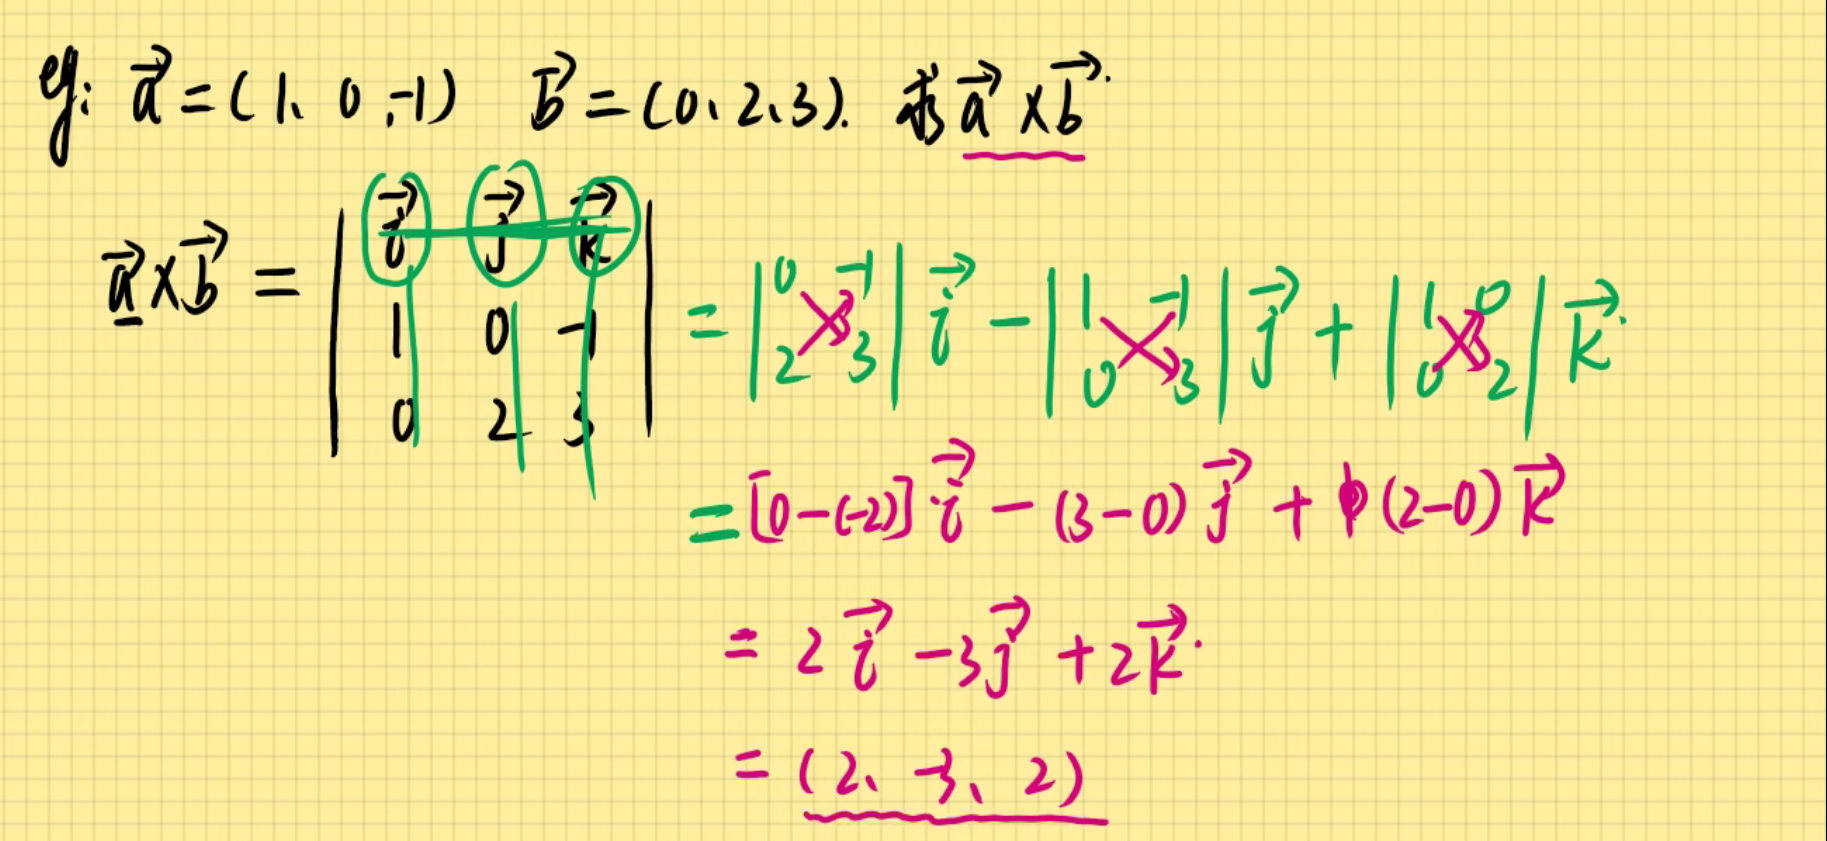 eg: a⃗ = (1、0,-1) b⃗ = (0、2、3). 求 a⃗ × b⃗.
a⃗ × b⃗ = | i⃗ j⃗ k⃗ |
| 1 0 -1 |
| 0 2 3 |
= | 0 -1 | i⃗ - | 1 -1 | j⃗ + | 1 0 | k⃗.
| 2 3 | | 0 3 | | 0 2 |
= [0-(-2)]·i⃗ - (3-0) j⃗ + (2-0) k⃗
= 2 i⃗ - 3 j⃗ + 2 k⃗.
= (2、-3、2)